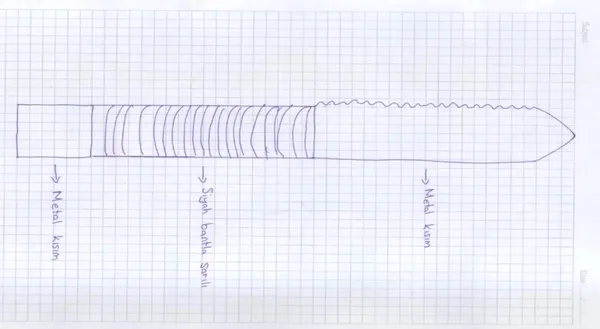 Metal kısım
Siyah bantla sarılı
Metal kısım